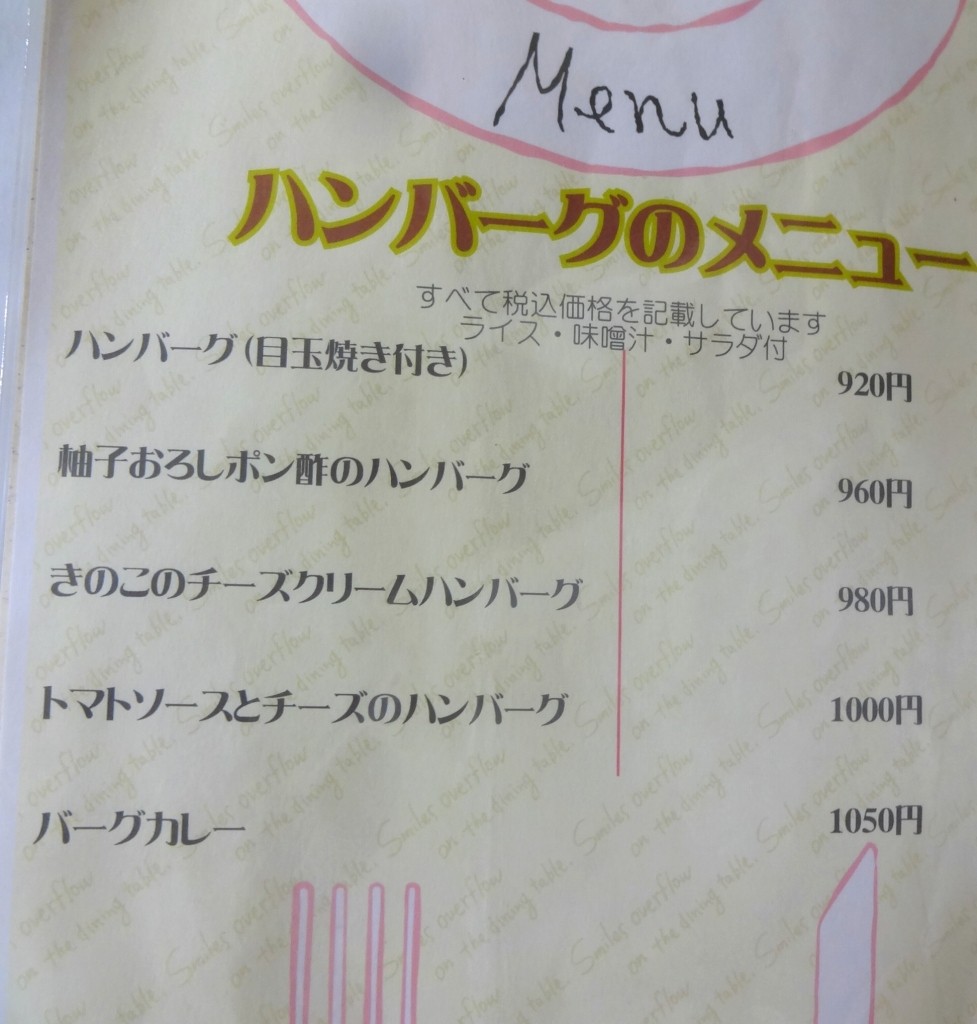 Menu
ハンバーグのメニュー
すべて税込価格を記載しています
ライス・味噌汁・サラダ付
ハンバーグ(目玉焼き付き) 920円
柚子おろしポン酢のハンバーグ 960円
きのこのチーズクリームハンバーグ 980円
トマトソースとチーズのハンバーグ 1000円
バーグカレー 1050円
Smiles overflow
on the dining table.